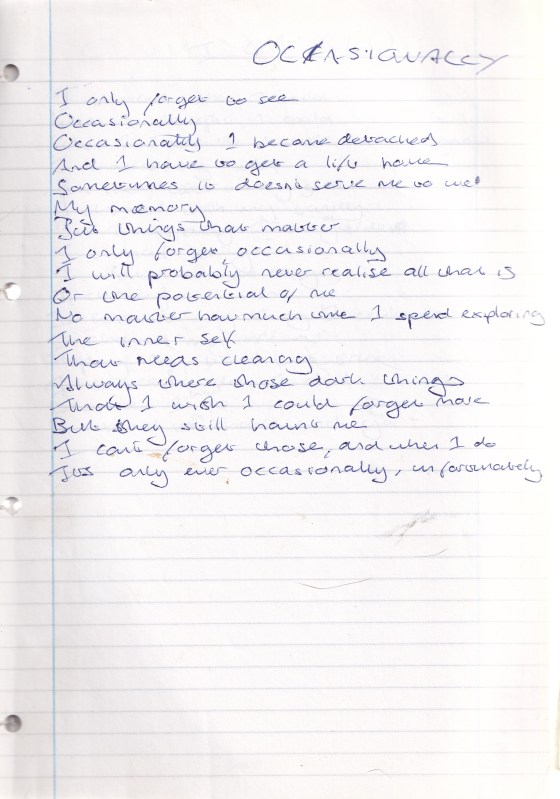 OCCASIONALLY
I only forget to see
Occasionally
Occasionally I become detached
And I have to get a life have
Sometimes it doesn't serve me to
My memory
But things that matter
I only forget, occasionally
I will probably never realise all that is
Or the potential of me
No matter how much time I spend exploring
The inner self
That needs clearing
Always there those dark things
That I wish I could forget more
But they still haunt me
I can't forget those, and when I do
Its only ever occasionally, unfortunately